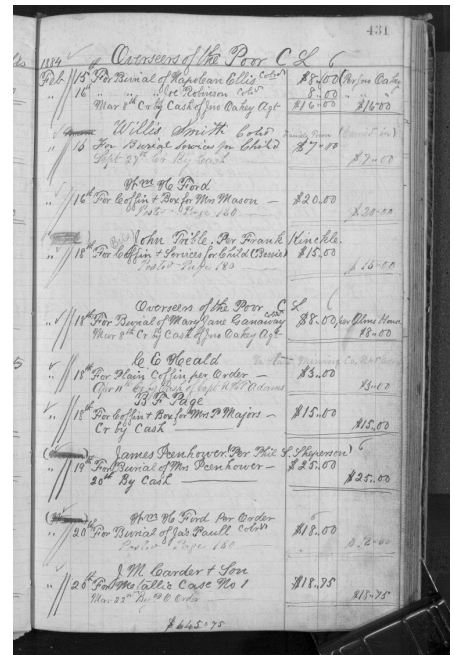 431
1884 Overseers of the Poor C L 6
Feb 15 For Burial of Napolean Ellis Cold $8.00 (Per Jno Oakey
16th " " " Joe Robinson Cold 8.00
Mar 8th Cr by Cash of Jno Oakey Agt $16.00 $16.00
Willis Smith Cold
16 For Burial Services for Child $7.00
Sept 27th Cr By Cash $7.00
Wm H Ford
16th For Coffin & Box for Mrs Mason — $20.00
Posted Page 160 $20.00
John Trible, Per Frank Kinckle
18th For Coffin & Services for Child (Bessie) $15.00
Posted Page 180 $15.00
Overseers of the Poor C L 6
18th For Burial of Mary Jane Ganaway Cold $8.00 per Alms House
Mar 8th Cr by Cash of Jno Oakey Agt $8.00
C E Heald
18th For Plain Coffin per Order — $3.00
Apr 11th Cr by Cash of Capt Adams $3.00
B F Page
18th For Coffin & Box for Mrs P Majors — $15.00
Cr by Cash $15.00
James Penhower (Per Phil S. Sheperson) 6
19th For Burial of Mrs Penhower — $25.00
20th By Cash $25.00
Wm H Ford Per Order 6
20th For Burial of Jas Paull Cold $18.00
Posted Page 160
J M Carder & Son
20th For Metallic Case No 1 $18.75
Mar 22nd $18.75
$645.75